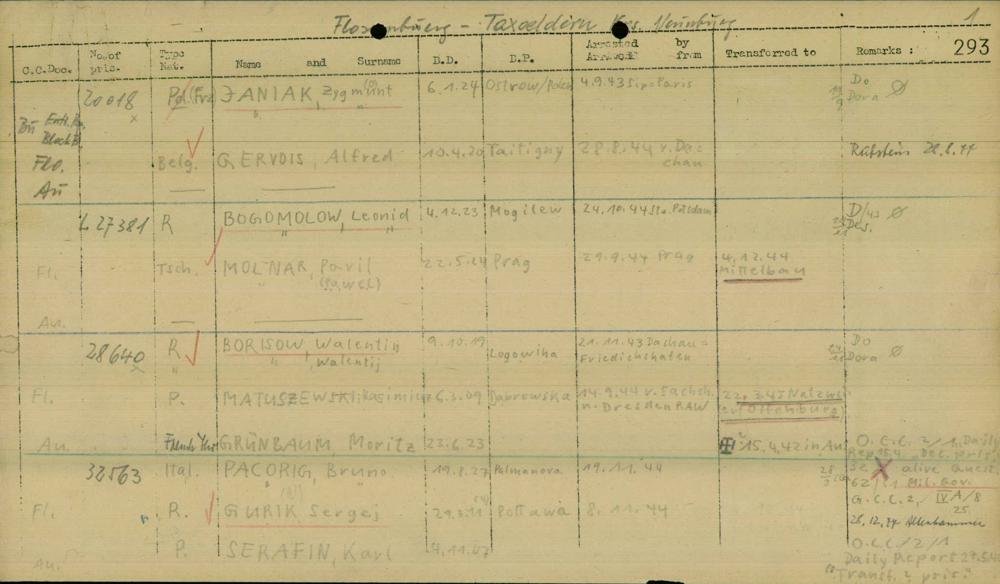 Flossenbuerg - Taxoeldern Krs. Neunburg
1
293
C.C.Doc. No.of pris. Type Nat. Name and Surname B.D. B.P. Arrested by from Transferred to Remarks :
20018 Pol. (Frz) JANIAK, Zygmunt 6.1.24 Ostrow/Polen 4.9.43 Sipo Paris Do Dora Ø
Bu
Flo. Belg. GERVOIS, Alfred 10.4.20 Taitigny 28.8.44 v. Dachau 28.8.44
Au
27381 R BOGOMOLOW, Leonid 4.12.23 Mogilew 24.10.44 Sta. Potsdam Ø
Fl. Tsch. MOLNAR, Pavil (Pawel) 22.5.24 Prag 29.9.44 Prag 4.12.44 Mittelbau
Au.
28640 R BORISOW, Walentin 9.10.19 Logowika 21.11.43 Dachau = Do Dora Ø
" Walentij Friedrichshafen
Fl. P. MATUSZEWSKI, Kasimierz 6.3.09 Dabrowska 14.9.44 v. Sachsh. n. Dresden RAW 22.3.45 Natzw. (Offenburg)
Au. GRÜNBAUM, Moritz 23.6.23 15.4.42 in Au O.C.C. 2/1, Daily Rep.
32563 Ital. PACORIG, Bruno 19.8.27 Palmanova 19.11.44 alive Quest. Mil. Gov.
Fl. R. GURIK Sergej Poltawa 8.11.44 G.C.C. 2/ IV A/8
26.12.44 Altenhammer
Au. P. SERAFIN, Karl 4.11.07 O.C.C./2/1
Daily Report
"Transf. 2 pris."